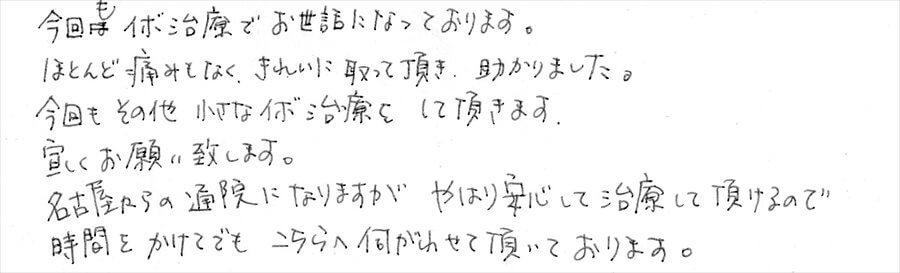 今回も イボ治療で お世話になっております。
ほとんど痛みもなく、きれいに取って頂き、助かりました。
今回も その他 小さなイボ治療を して頂きます.
宜しくお願い致します。
名古屋からの通院になりますが やはり安心して治療して頂けるので
時間を かけてでも こちらへ伺がわせて頂いております。